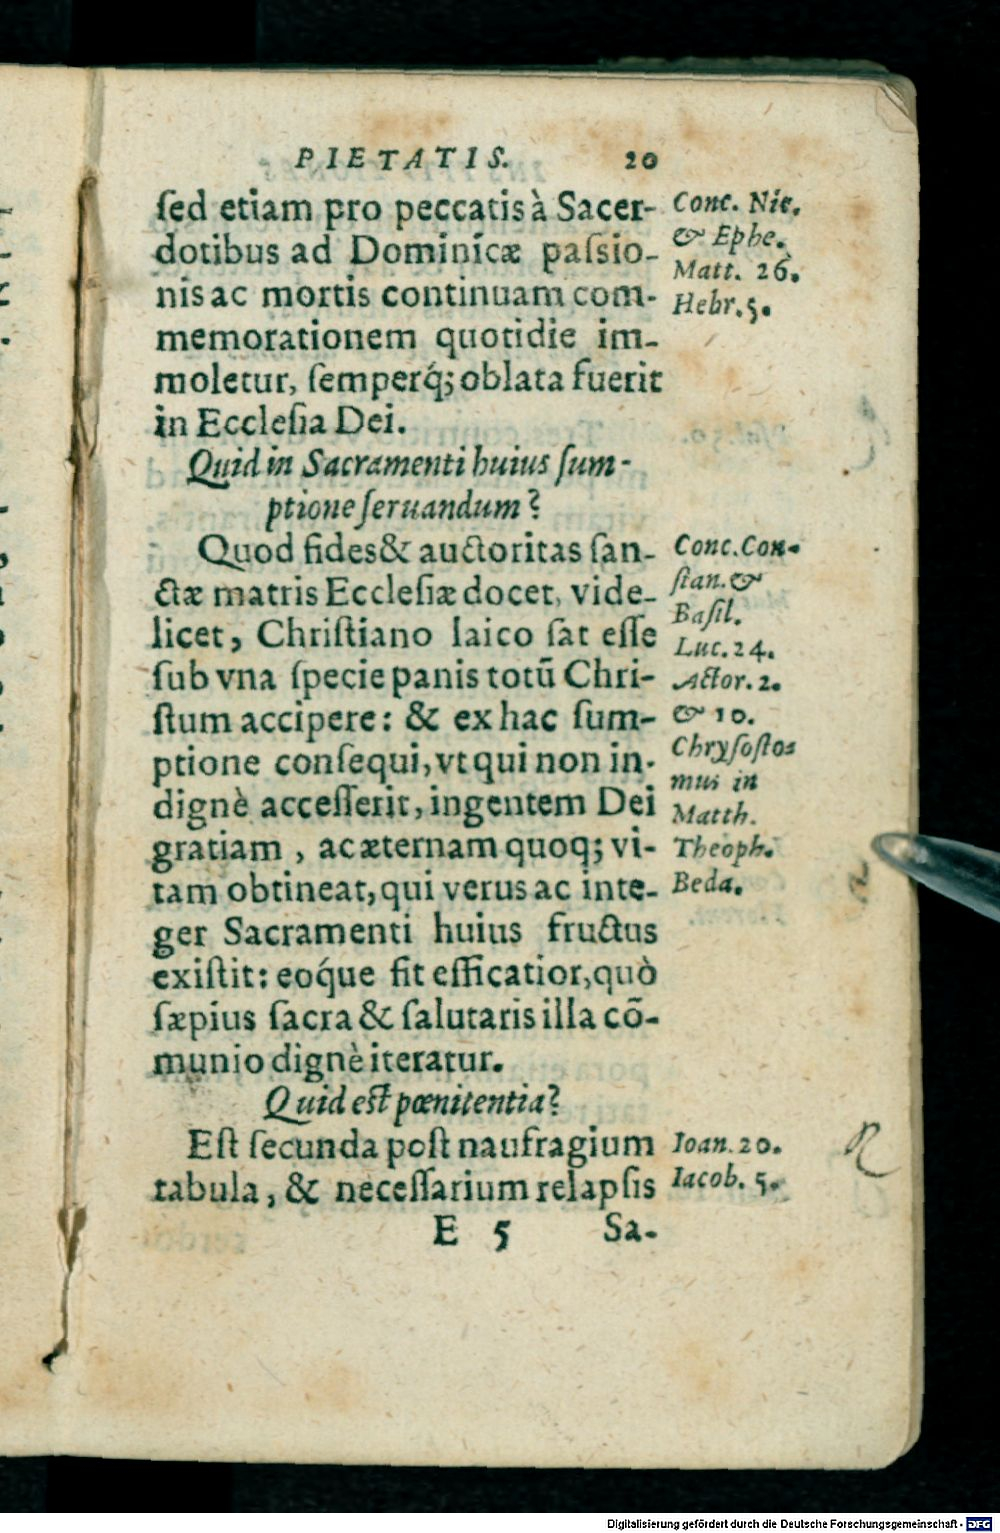 PIETATIS. 20
ſed etiam pro peccatis à Sacer-
dotibus ad Dominicæ paſsio-
nis ac mortis continuam com-
memorationem quotidie im-
moletur, ſemperq́; oblata fuerit
in Eccleſia Dei.
Conc. Nic.
& Ephe.
Matt. 26.
Hebr. 5.
Quid in Sacramenti huius ſum-
ptione ſeruandum?
Quod fides & auctoritas ſan-
ctæ matris Eccleſiæ docet, vide-
licet, Chriſtiano laico ſat eſſe
ſub vna ſpecie panis totũ Chri-
ſtum accipere: & ex hac ſum-
ptione conſequi, vt qui non in-
dignè acceſſerit, ingentem Dei
gratiam, ac æternam quoq; vi-
tam obtineat, qui verus ac inte-
ger Sacramenti huius fructus
exiſtit: eoq́ue fit efficatior, quò
ſæpius ſacra & ſalutaris illa cõ-
munio dignè iteratur.
Conc. Con-
ſtan. &
Baſil.
Luc. 24.
Actor. 2.
& 10.
Chryſoſto-
mus in
Matth.
Theoph.
Beda.
Quid eſt pœnitentia?
Eſt ſecunda poſt naufragium
tabula, & neceſſarium relapſis
Ioan. 20.
Iacob. 5.
E 5 Sa-
Digitalisierung gefördert durch die Deutsche Forschungsgemeinschaft - DFG